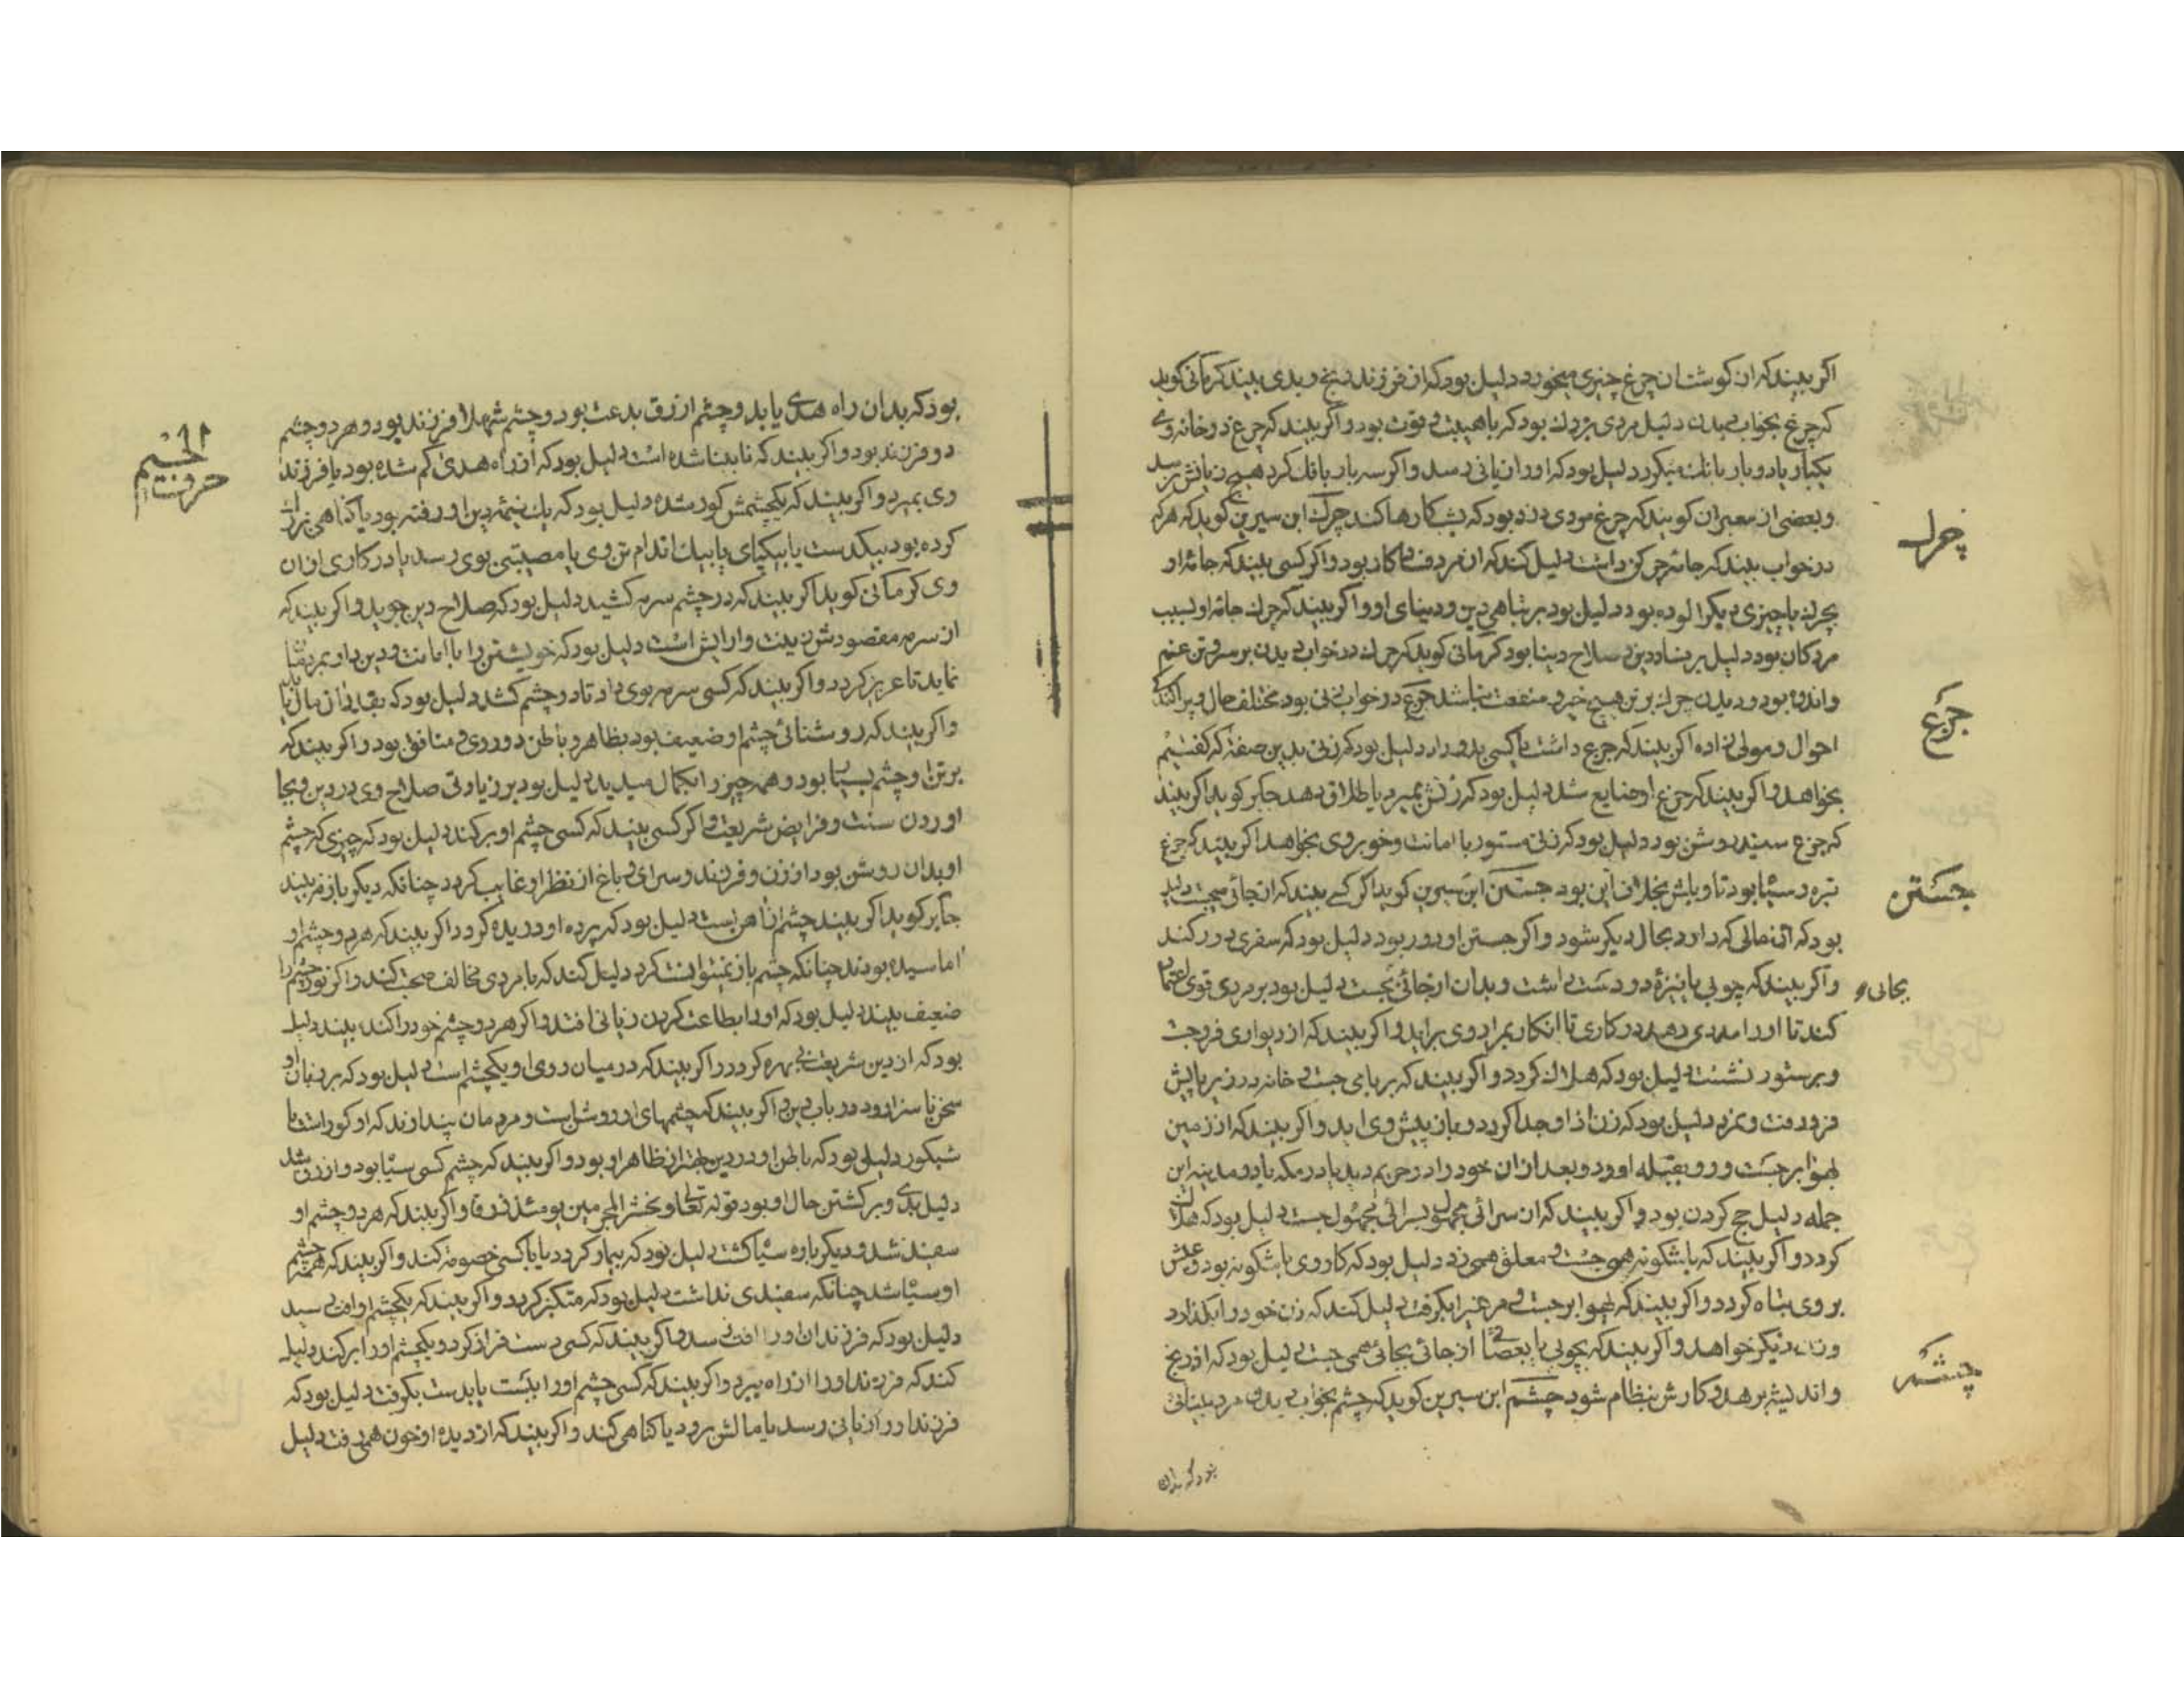 اکر بیند که از کوشت ان چرغ چیزی میخورد دلیل بود که از فرزند رنج و بدی بیند کرمانی کوید
که چرغ بخواب دیدن دلیل مردی بزرك بود که باهیبت و قوت بود و اکر بیند که چرغ در خانه وی
یکبار یا دو بار بانك میکرد دلیل بود که او را زیانی رسد و اکر سه بار بانك کرد هیچ زیانش نرسد
و بعضی از معبران کویند که چرغ مردی دزد بود که بشب کارها کند چرك ابن سیرین کوید که هر که
چرك
در خواب بیند که جامه چرکن داشت دلیل کند که ان مرد کار بود و اکر کسی بیند که جامه او
بچرك یا چیزی دیکر الوده بود دلیل بود بر تباهی دین و دنیای او و اکر بیند که چرك جامه او بسبب
مردکان بود دلیل بر فساد دین و صلاح دنیا بود کرمانی کوید که چرك در خواب دیدن بر سر و تن غم
و اندوه بود و دیدن چرك بر تن هیچ خیر و منفعت نباشد جزع در خواب زنی بود مختلف حال و پراکنده
جزع
احوال و مولی زاده اکر بیند که جزع داشت یا کسی بدو داد دلیل بود که زنی بدین صفة که کفتیم
بخواهد و اکر بیند که جزع او ضایع شد دلیل بود که زنش بمیرد یا طلاق دهد جابر کوید اکر بیند
که جزع سپید و روشن بود دلیل بود که زنی مستور با امانت و خوبروی بخواهد اکر بیند که جزع
تیره و سیاه بود تاویلش بخلاف این بود جستن ابن سیرین کوید اکر کسے بیند که از جائی بجست دلیل
جستن
بود که از حالی که دارد بحال دیکر شود و اکر جستن او دور بود دلیل بود که سفری دور کند
و اکر بیند که چوبی یا نیزۀ در دست داشت و بدان از جائی بجست دلیل بود بر مردی قوی اعتماد
بجائی
کند تا او را مددی دهد در کاری تا انکار بمراد وی براید و اکر بیند که از دیواری فروجست
و بر ستور نشست دلیل بود که هلاك کردد و اکر بیند که بر پای جست و خانه در زیر پایش
فرو رفت دلیل بود که زن از او جدا کردد و باز پیش وی اید و اکر بیند که از زمین
بهوا برجست و رو بقبله اورد و بعد ازان خود را در حرم دید یا در مکه یا در مدینه این
جمله دلیل حج کردن بود و اکر بیند که از سرائی مجهول بسرائی مجهول جست دلیل بود که هلاك
کردد و اکر بیند که باشکونه همی جست و معلق همی زد دلیل بود که کار وی باشکونه بود و عیش
بر وی تباه کردد و اکر بیند که بهوا برجست و مرغی را بکرفت دلیل کند که زن خود را بکذارد
و زن دیکر خواهد و اکر بیند که بچوبی یا بعصا از جائی بجائی همی جست دلیل بود که از رنج
و اندیشه برهد و کارش بنظام شود چشم ابن سیرین کوید که چشم بخواب دیدن مرد بینائی
چشم
بود که بدان
بود که بدان راه هدی یابد و چشم ازرق بدعت بود و چشم شهلا فرزند بود و هر دو چشم
حرف الجیم
دو فرزند بود و اکر بیند که نابینا شده است دلیل بود که از راه هدی کم شده بود یا فرزند
وی بمیرد و اکر بیند که یکچشمش کور شده دلیل بود که یك نیمۀ دین او رفته بود یا کناهی بزرك
کرده بود بیکدست یا بیکپای یا بیك اندام تن وی یا مصیبتی بوی رسد یا در کاری ازان
وی کرمانی کوید اکر بیند که در چشم سرمه کشید دلیل بود که صلاح دین جوید و اکر بیند که
از سرمه مقصودش زینت و ارایش است دلیل بود که خویشتن را با امانت و دین دار بمردمان
نماید تا عزیز کردد و اکر بیند که کسی سرمه بوی داد تا در چشم کشد دلیل بود که بقدر ان مال یابد
و اکر بیند که روشنائی چشم او ضعیف بود بظاهر و باطن دوروی و منافق بود و اکر بیند که
بر تن او چشم بسیار بود و همه چیز را بکمال میدید دلیل بود بر زیادتی صلاح وی در دین و بجا
اوردن سنت و فرایض شریعت و اکر کسی بیند که کسی چشم او برکند دلیل بود که چیزی که چشم
او بدان روشن بود از زن و فرزند و سرای و باغ از نظر او غایب کردد چنانکه دیکر باز نه بیند
جابر کوید اکر بیند چشم از اهن است دلیل بود که پرده او دریده کردد اکر بیند که هر دو چشم او
اماسیده بودند چنانکه چشم باز نمیتوانست کرد دلیل کند که با مردی مخالف صحبت کند و اکر نور چشم را
ضعیف بیند دلیل بود که او را بطاعت کردن زیانی افتد و اکر هر دو چشم خود را کند بیند دلیل
بود که از دین شریعت بی بهره کردد و اکر بیند که در میان روی او یکچشم است دلیل بود که بر زبان او
سخن ناسزا رود در باب دین و اکر بیند که چشمهای او روشن است و مردمان پندارند که او کور است یا
شبکور دلیل بود که باطن او در دین بهتر از ظاهر او بود و اکر بیند که چشم کسی سیاه بود و ازرق شد
دلیل بدی و برکشتن حال او بود قوله تعالی و نحشر المجرمین یومئذ زرقا و اکر بیند که هر دو چشم او
سفید شد و دیکر باره سیاه کشت دلیل بود که بیمار کردد یا با کسی خصومة کند و اکر بیند که همه چشم
او سیاه شد چنانکه سفیدی نداشت دلیل بود که متکبر کردد و اکر بیند که یکچشم او را افتی رسید
دلیل بود که فرزندان او را افت رسد و اکر بیند که کسی دست فراز کرد و یکچشم او را برکند دلیل
کند که فرزند او را از راه ببرد و اکر بیند که کسی چشم او را ببست یا بدست بکرفت دلیل بود که
فرزند او را زیانی رسد یا مالش برود یا کناهی کند و اکر بیند که از دیده او خون همی رفت دلیل